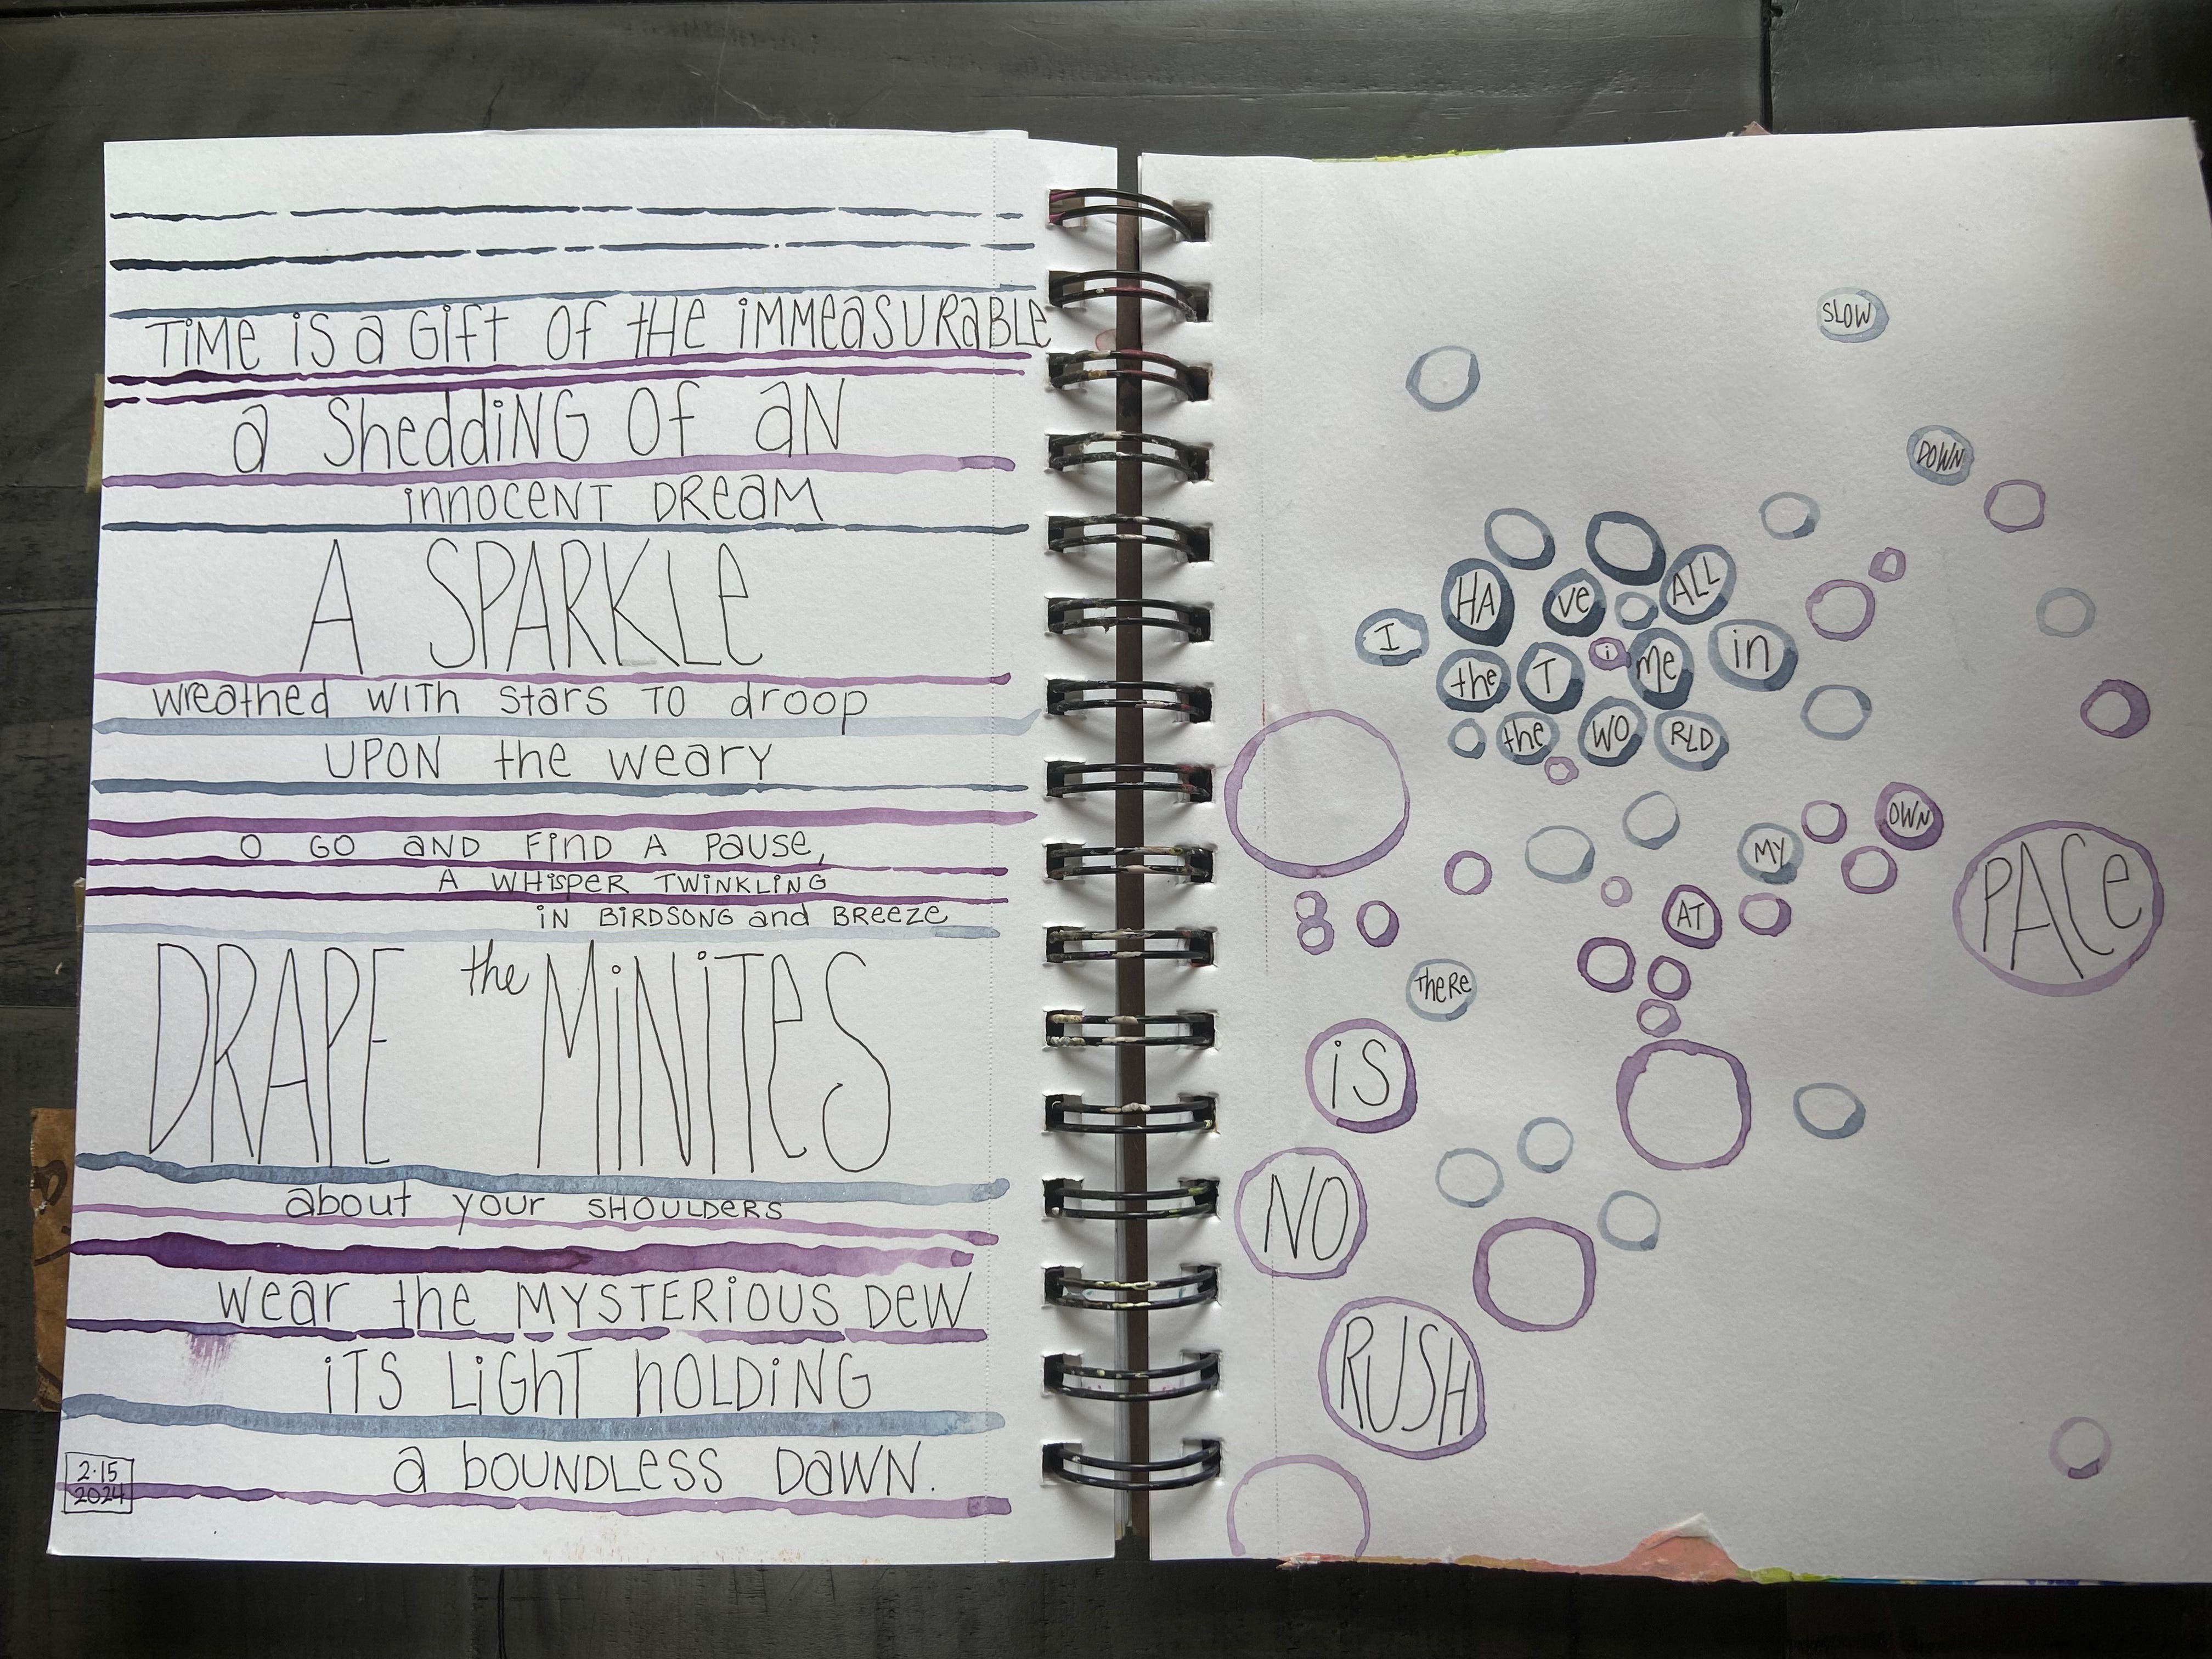 TiMe iS a Gift Of tHe iMMeaSURaBLe
a SheddiNG Of aN
innOCeNT DReaM
A SPARKLe
wreathed WiTh stars TO droop
UPON the weary
O GO aND FiND A Pause,
A WHisPeR TWiNKLiNG
iN BiRDSONG and BReeZe
DRAPE the MiNiTeS
about your SHOULDERS
wear the MYSTERiOUS DeW
iTS LiGhT hOLDiNG
a bOUNDLess DaWN.
2·15
2024
SLOW
DOWN
I HA ve ALL
the T i Me in
the WO RLD
theRe
iS
NO
RUSH
AT
MY
OWN
PACe